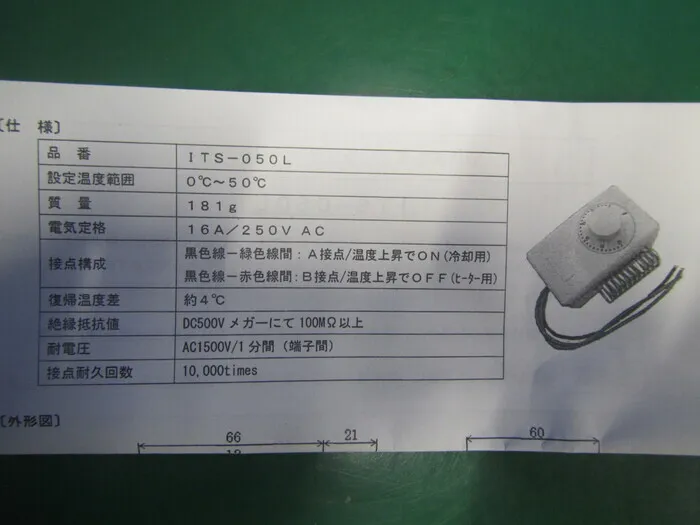 〔仕 様〕
品 番 ITS-050L
設定温度範囲 0℃~50℃
質 量 181g
電気定格 16A/250V AC
接点構成 黒色線-緑色線間：A接点/温度上昇でON(冷却用)
黒色線-赤色線間：B接点/温度上昇でOFF(ヒーター用)
復帰温度差 約4℃
絶縁抵抗値 DC500Vメガーにて100MΩ以上
耐電圧 AC1500V/1分間（端子間）
接点耐久回数 10,000times
〔外形図〕
66 21 60